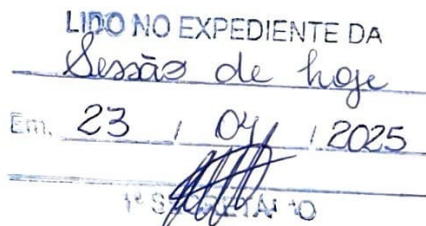 LIDO NO EXPEDIENTE DA
Sessão de hoje
Em, 23 / 04 / 2025
1º SECRETÁRIO